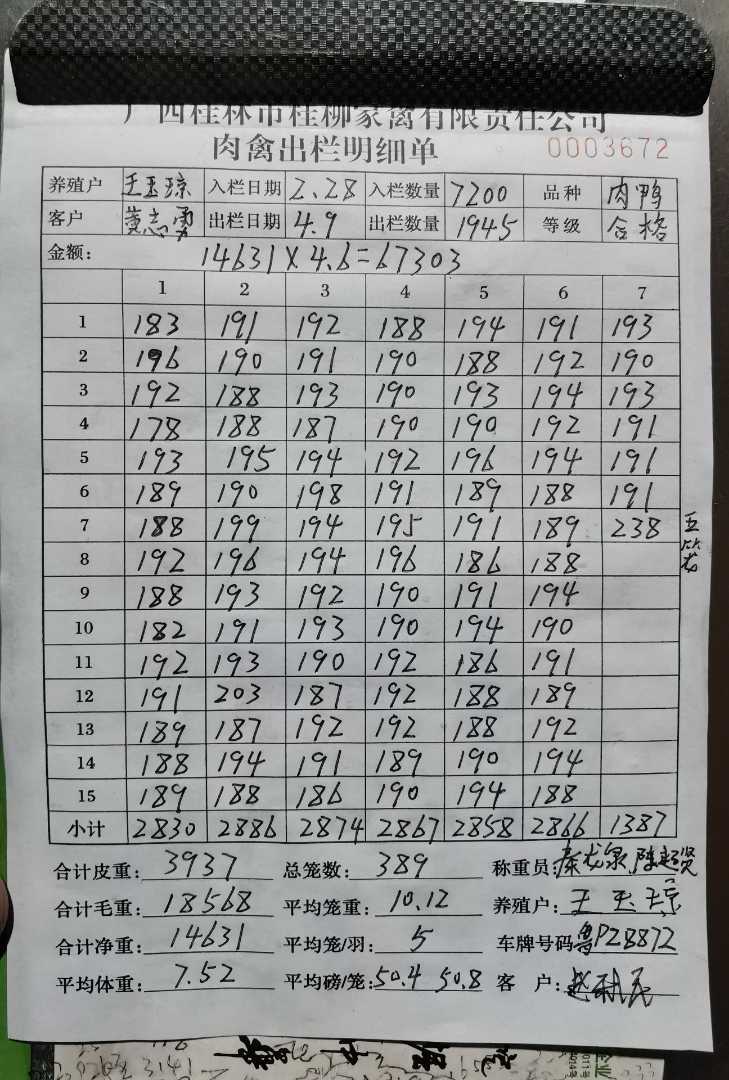 广西桂林市桂柳家禽有限责任公司
肉禽出栏明细单 0003672
养殖户 王玉琼 入栏日期 2.28 入栏数量 7200 品种 肉鸭
客户 黄志勇 出栏日期 4.9 出栏数量 1945 等级 合格
金额: 14631×4.6=67303
1 2 3 4 5 6 7
1 183 191 192 188 194 191 193
2 196 190 191 190 188 192 190
3 192 188 193 190 193 194 193
4 178 188 187 190 190 192 191
5 193 195 194 192 196 194 191
6 189 190 198 191 189 188 191
7 188 199 194 195 191 189 238 五笼
8 192 196 194 196 186 188
9 188 193 192 190 191 194
10 182 191 193 190 194 190
11 192 193 190 192 186 191
12 191 203 187 192 188 189
13 189 187 192 192 188 192
14 188 194 191 189 190 194
15 189 188 186 190 194 188
小计 2830 2886 2874 2867 2858 2866 1387
合计皮重: 3937 总笼数: 389 称重员: 秦龙泉 陈超贤
合计毛重: 18568 平均笼重: 10.12 养殖户: 王玉琼
合计净重: 14631 平均笼/羽: 5 车牌号码 鲁PZB872
平均体重: 7.52 平均磅/笼: 50.4 50.8 客户: